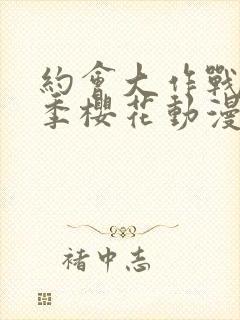 約會大作戰
季櫻花動漫
褚中志